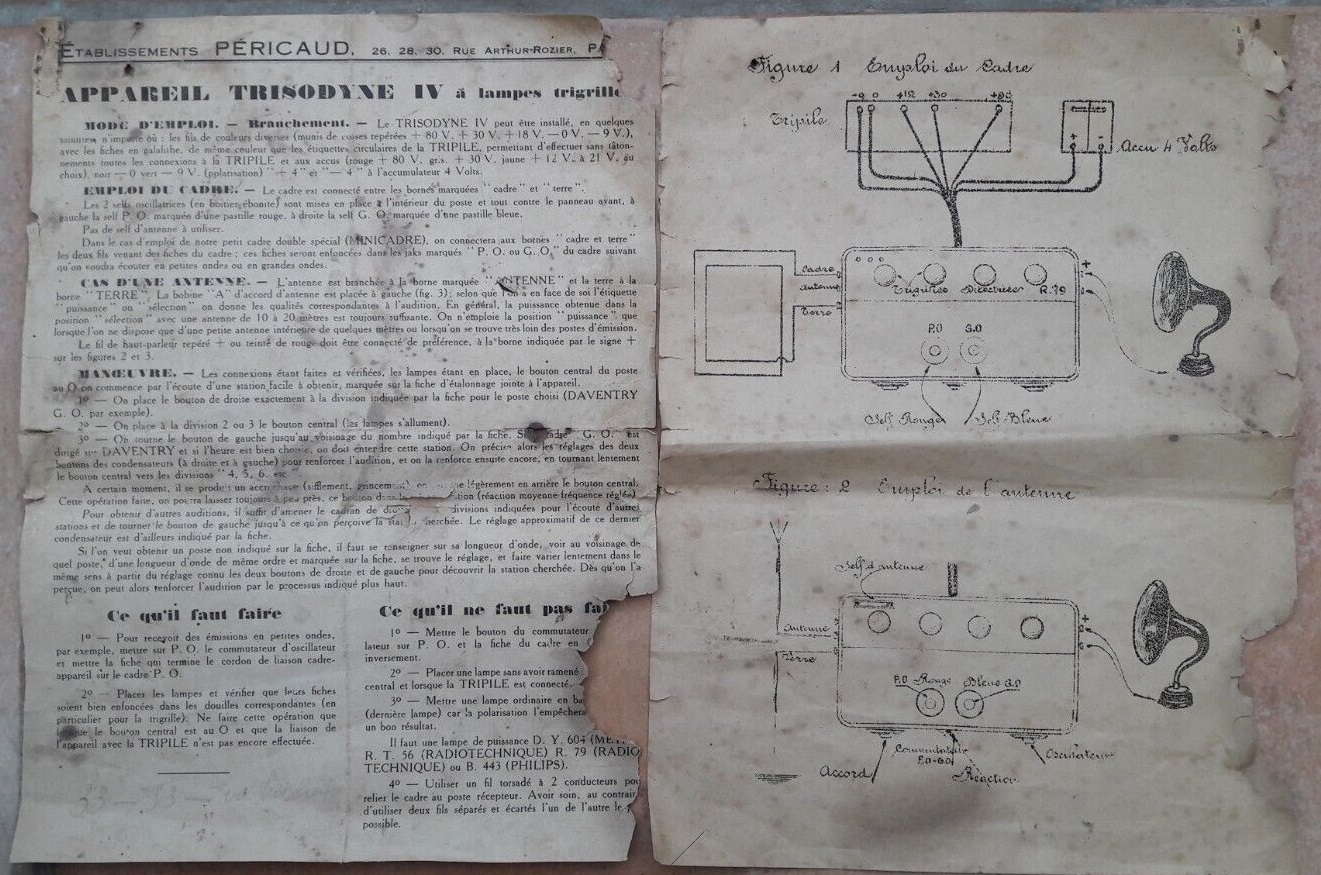 ÉTABLISSEMENTS PÉRICAUD, 26. 28. 30. RUE ARTHUR-ROZIER. PA
APPAREIL TRISODYNE IV à lampes trigrille
MODE D'EMPLOI. — Branchement. — Le TRISODYNE IV peut être installé, en quelques
minutes n'importe où : les fils de couleurs diverses (munis de cosses repérées + 80 V. + 30 V. + 18 V. — 0 V. — 9 V.),
avec les fiches en galalithe, de même couleur que les étiquettes circulaires de la TRIPILE, permettant d'effectuer sans tâton-
nements toutes les connexions à la TRIPILE et aux accus (rouge + 80 V. gris. + 30 V. jaune + 12 V. à 21 V. au
choix), noir — 0 vert — 9 V. (polarisation) " + 4 " et " — 4 " à l'accumulateur 4 Volts.
EMPLOI DU CADRE. — Le cadre est connecté entre les bornes marquées " cadre " et " terre ".
Les 2 selfs oscillatrices (en boîtier ébonite) sont mises en place à l'intérieur du poste et tout contre le panneau avant, à
gauche la self P. O. marquée d'une pastille rouge, à droite la self G. O. marquée d'une pastille bleue.
Pas de self d'antenne à utiliser.
Dans le cas d'emploi de notre petit cadre double spécial (MINICADRE), on connectera aux bornes " cadre et terre "
les deux fils venant des fiches du cadre ; ces fiches seront enfoncées dans les jaks marqués " P. O. ou G. O. " du cadre suivant
qu'on voudra écouter en petites ondes ou en grandes ondes.
CAS D'UNE ANTENNE. — L'antenne est branchée à la borne marquée " ANTENNE " et la terre à la
borne " TERRE ". La bobine " A " d'accord d'antenne est placée à gauche (fig. 3) ; selon que l'on a en face de soi l'étiquette
" puissance " ou " sélection " on donne les qualités correspondantes à l'audition. En général, la puissance obtenue dans la
position " sélection " avec une antenne de 10 à 20 mètres est toujours suffisante. On n'emploie la position " puissance " que
lorsque l'on ne dispose que d'une petite antenne intérieure de quelques mètres ou lorsqu'on se trouve très loin des postes d'émission.
Le fil de haut-parleur repéré + ou teinté de rouge doit être connecté de préférence, à la borne indiquée par le signe +
sur les figures 2 et 3.
MANŒUVRE. — Les connexions étant faites et vérifiées, les lampes étant en place, le bouton central du poste
au O on commence par l'écoute d'une station facile à obtenir, marquée sur la fiche d'étalonnage jointe à l'appareil.
1º — On place le bouton de droite exactement à la division indiquée par la fiche pour le poste choisi (DAVENTRY
G. O. par exemple).
2º — On place à la division 2 ou 3 le bouton central (les lampes s'allument).
3º — On tourne le bouton de gauche jusqu'au voisinage du nombre indiqué par la fiche. Si cadre " G. O. " est
dirigé sur DAVENTRY et si l'heure est bien choisie, on doit entendre cette station. On précise alors les réglages des deux
boutons des condensateurs (à droite et à gauche) pour renforcer l'audition, et on la renforce ensuite encore, en tournant lentement
le bouton central vers les divisions " 4, 5, 6, etc
A certain moment, il se produit un accrochage (sifflement, grincement) légèrement en arrière le bouton central.
Cette opération faite, on pourra laisser toujours à peu près, ce bouton dans la tion (réaction moyenne fréquence réglée)
Pour obtenir d'autres auditions, il suffit d'amener le cadran de divisions indiquées pour l'écoute d'autres
stations et de tourner le bouton de gauche jusqu'à ce qu'on perçoive la cherchée. Le réglage approximatif de ce dernier
condensateur est d'ailleurs indiqué par la fiche.
Si l'on veut obtenir un poste non indiqué sur la fiche, il faut se renseigner sur sa longueur d'onde, voir au voisinage de
quel poste, d'une longueur d'onde de même ordre et marquée sur la fiche, se trouve le réglage, et faire varier lentement dans le
même sens à partir du réglage connu les deux boutons de droite et de gauche pour découvrir la station cherchée. Dès qu'on l'a
perçue, on peut alors renforcer l'audition par le processus indiqué plus haut.
Ce qu'il faut faire
1º — Pour recevoir des émissions en petites ondes,
par exemple, mettre sur P. O. le commutateur d'oscillateur
et mettre la fiche qui termine le cordon de liaison cadre-
appareil sur le cadre P. O.
2º — Placer les lampes et vérifier que leurs fiches
soient bien enfoncées dans les douilles correspondantes (en
particulier pour la trigrille). Ne faire cette opération que
le bouton central est au O et que la liaison de
l'appareil avec la TRIPILE n'est pas encore effectuée.
Ce qu'il ne faut pas fai
1º — Mettre le bouton du commutateur
lateur sur P. O. et la fiche du cadre en
inversement.
2º — Placer une lampe sans avoir ramené
central et lorsque la TRIPILE est connecté.
3º — Mettre une lampe ordinaire en ba
(dernière lampe) car la polarisation l'empêchera
un bon résultat.
Il faut une lampe de puissance D. Y. 604 (MET
R. T. 56 (RADIOTECHNIQUE) R. 79 (RADIO
TECHNIQUE) ou B. 443 (PHILIPS).
4º — Utiliser un fil torsadé à 2 conducteurs pou
relier le cadre au poste récepteur. Avoir soin, au contrair
d'utiliser deux fils séparés et écartés l'un de l'autre le p
possible.
Figure 1 Emploi du Cadre
-9 0 +12 +30 +80
Tripile
Accu 4 Volts
Cadre
antenne
Terre
Trigrilles Directrices R.79
+
P.O G.O
Self Rouge Self Bleue
Figure : 2 Emploi de l'antenne
Self d'antenne
+
Antenne
Terre
P.O Rouge Bleue G.O
Accord
Commutateur
P.O-G.O
Réaction
Oscillateur